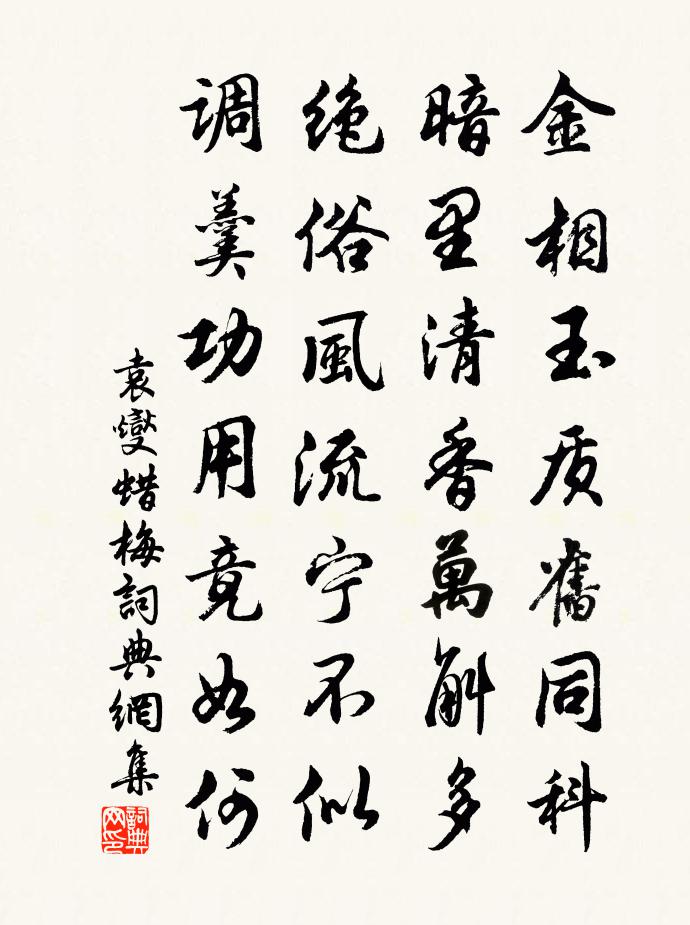 金相玉质舊同科
暗里清香萬斛多
绝俗風流宁不似
调羹功用竟如何
袁燮蜡梅詞典網集
詞典网印